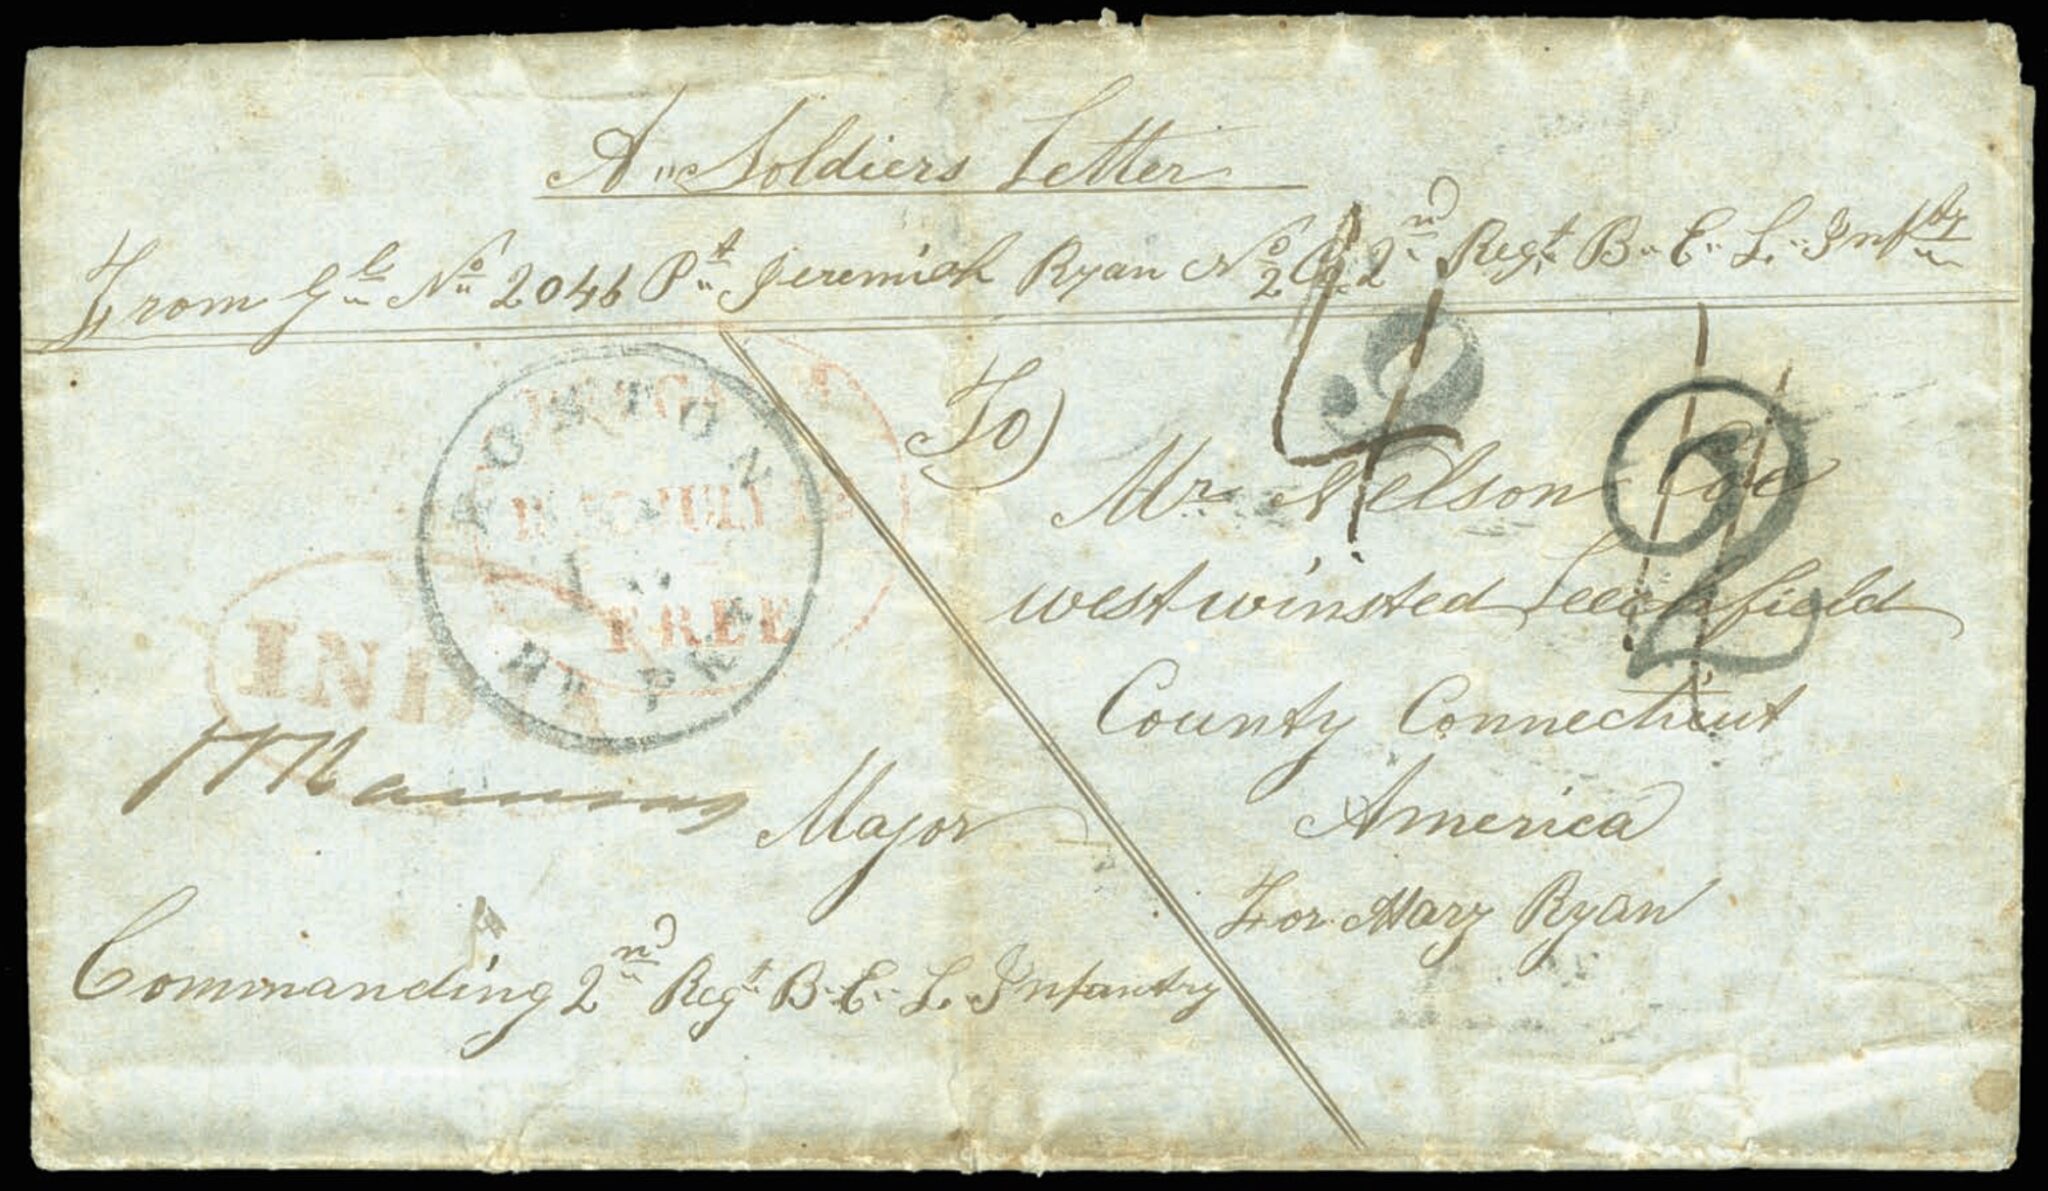 A" Soldiers Letter
From Gl No 2046 Pt Jeremiah Ryan No 2 Co 2nd Regt B. E. L. Inftry
To
Mr Nelson Coe
westwinsted Leechfield
County Connecticut
America
For Mary Ryan
BOSTON
BR PKT
JULY
FREE
IND
Major
Commanding 2nd Regt B. E. L. Infantry
4
2
2